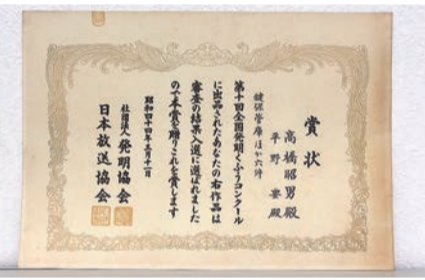 賞状
高橋昭男殿
平野 要殿
鍵保管庫 ほか六件
第十回全国発明くふうコンクール
に出品されたあなたの右作品は
審査の結果入選に選ばれました
ので本賞を贈りこれを賞します
昭和四十四年三月二十一日
社団法人 発明協会
日本放送協会